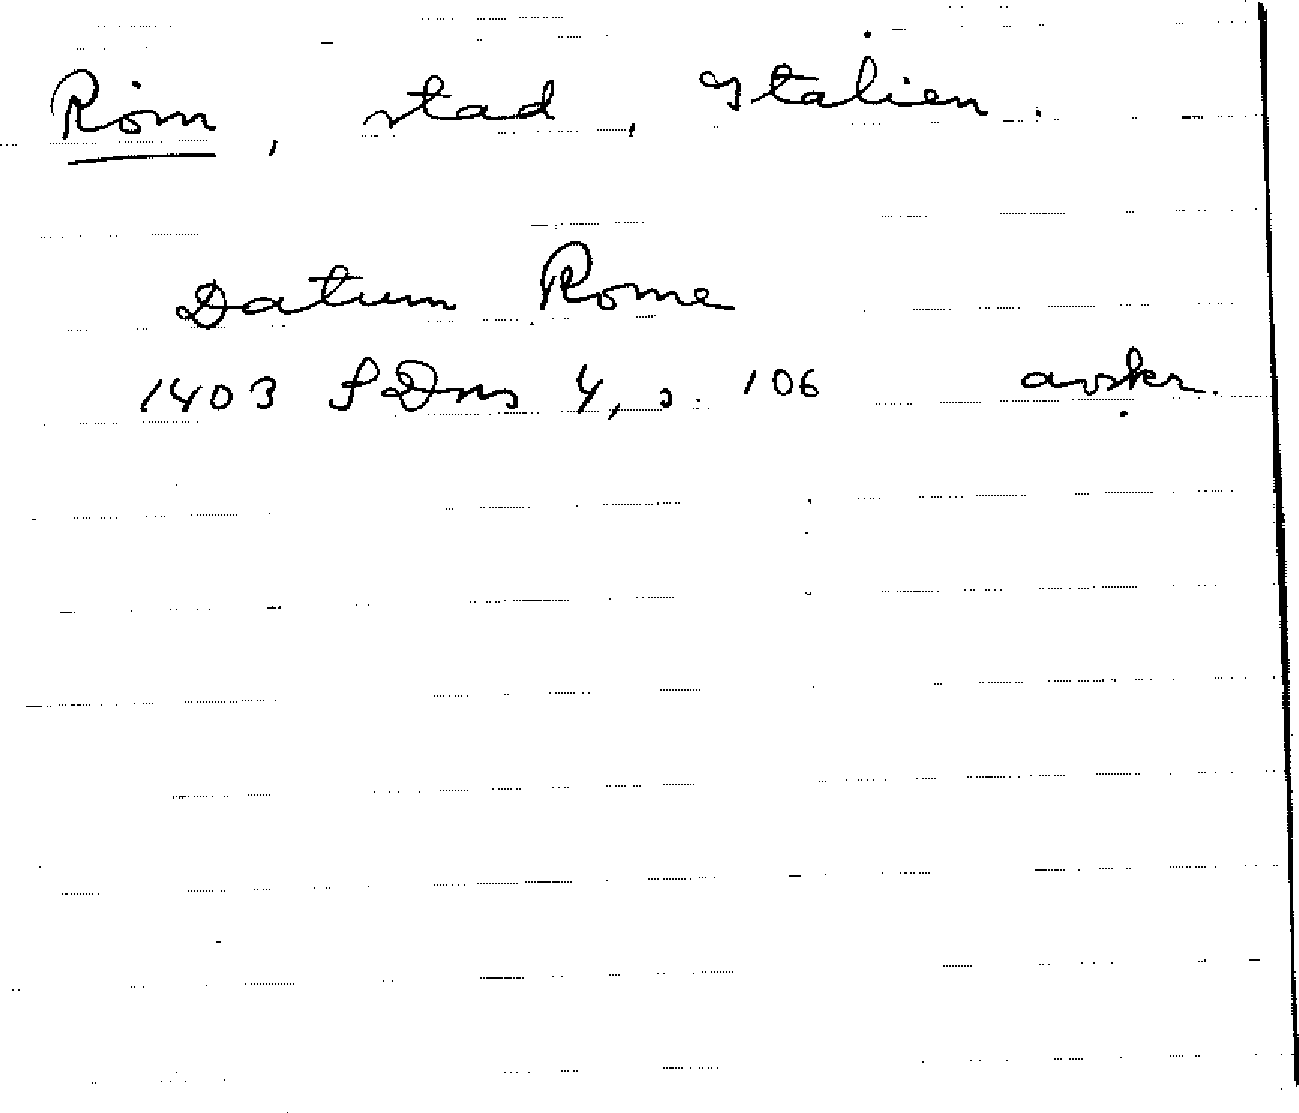 Rom, stad, Italien.
Datum Rome
1403 SDns 4, s. 106 avskr.